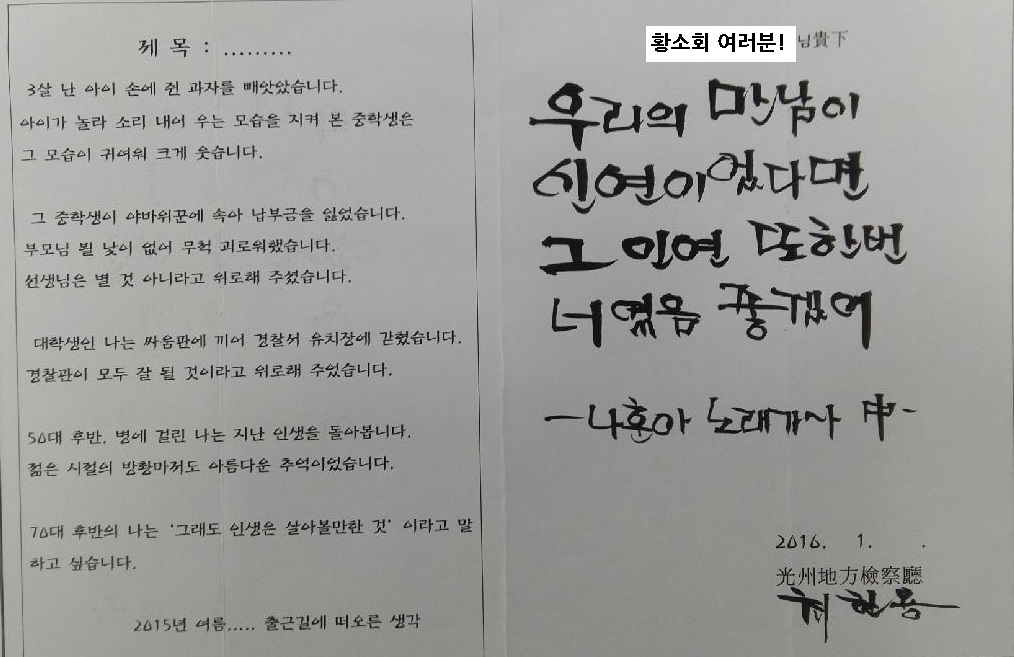 제 목 : .........
3살 난 아이 손에 쥔 과자를 빼앗았습니다.
아이가 놀라 소리 내어 우는 모습을 지켜 본 중학생은
그 모습이 귀여워 크게 웃습니다.
그 중학생이 야바위꾼에 속아 납부금을 잃었습니다.
부모님 뵐 낯이 없어 무척 괴로워했습니다.
선생님은 별 것 아니라고 위로해 주셨습니다.
대학생인 나는 싸움판에 끼어 경찰서 유치장에 갇혔습니다.
경찰관이 모두 잘 될 것이라고 위로해 주었습니다.
50대 후반, 병에 걸린 나는 지난 인생을 돌아봅니다.
젊은 시절의 방황마저도 아름다운 추억이었습니다.
70대 후반의 나는 '그래도 인생은 살아볼만한 것' 이라고 말
하고 싶습니다.
2015년 여름..... 출근길에 떠오른 생각
황소회 여러분! 님貴下
우리의 만남이
인연이었다면
그 인연 또한번
너였음 좋겠어
-나훈아 노래가사 中-
2016. 1. .
光州地方檢察廳